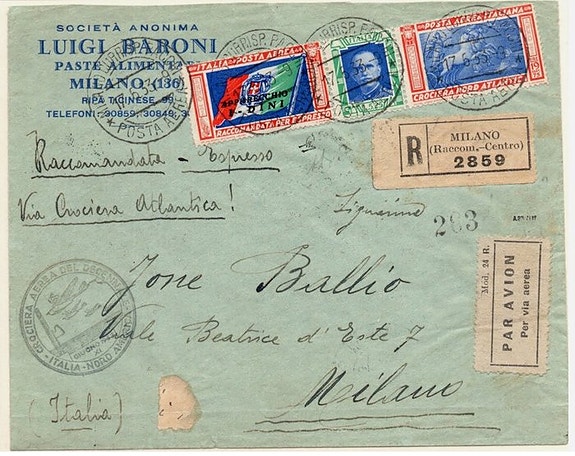 SOCIETÀ ANONIMA
LUIGI BARONI
PASTE ALIMENTA
MILANO (136)
RIPA TICINESE, 99
TELEFONI: 30859, 30849, 3
POSTA AEREA
ITALIA POSTA AEREA
APPARECCHIO
I-DINI
RACCOMANDATA PER ESPRESSO
POSTA AEREA ITALIANA
CROCIERA NORD ATLANTICA
R
MILANO
(Raccom.-Centro)
2859
Raccomandata - Espresso
Via Crociera Atlantica!
Signorina
263
Jone Ballio
Viale Beatrice d'Este 7
Milano
(Italia)
CROCIERA AEREA DEL DECENN
ITALIA - NORD AM
GIUGNO
Mod. 24 R.
PAR AVION
Per via aerea